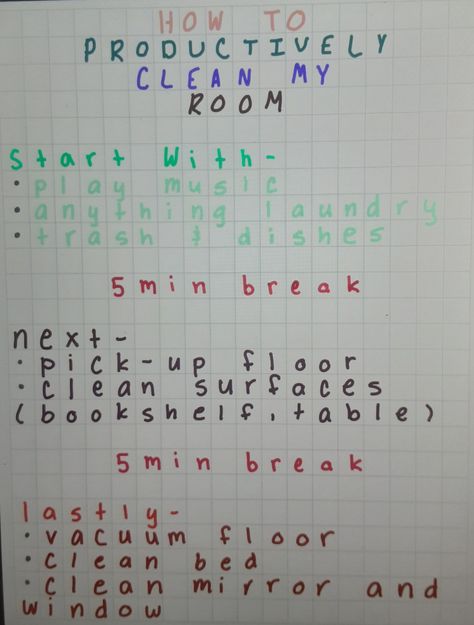 HOW TO
PRODUCTIVELY
CLEAN MY
ROOM
Start With-
• play music
• anything laundry
• trash & dishes
5 min break
next-
• pick-up floor
• clean surfaces
(bookshelf, table)
5 min break
lastly-
• vacuum floor
• clean bed
• clean mirror and
window